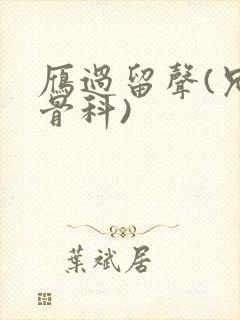 鴈過留聲(兄
骨科)
葉斌居